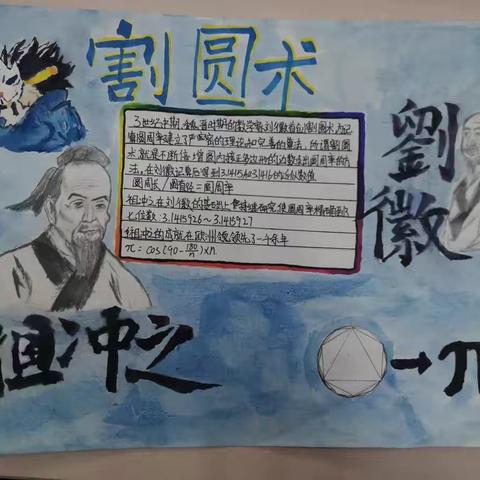 割圆术
3世纪中期,魏晋时期的数学家刘徽首创割圆术,为计
算圆周率建立了严密的理论和完善的算法,所谓割圆
术,就是不断倍增圆内接正多边形的边数求出圆周率的方
法,在刘徽记数后得到3.1415和3.1416的近似数值
圆周长/圆直径=圆周率
祖冲之在刘徽的基础上继续研究,使圆周率精确到
七位数:3.1415926~3.1415927
祖冲之的成就在欧洲领先了一千余年
π=cos(90-180/n)×n
劉徽
祖冲之
→π